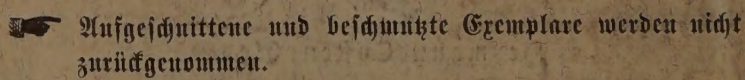 ☛ Aufgeschnittene und beschmutzte Exemplare werden nicht
zurückgenommen.